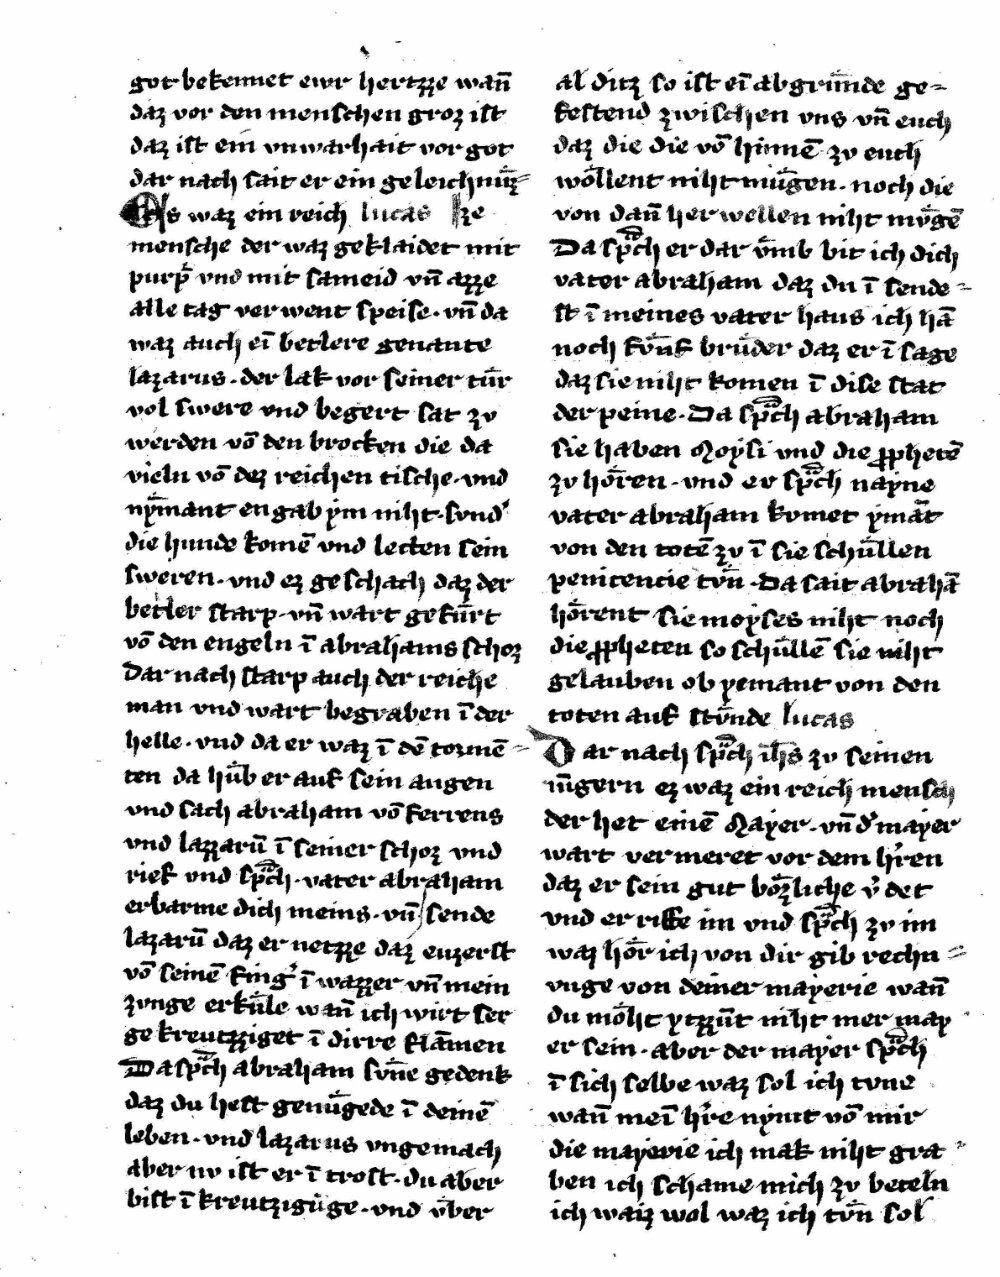 got bekennet ewr hertzze wan̄
daz vor den menschen groz ist
daz ist ein vnwarhait vor got
dar nach sait er ein geleichnüz̄=
Es waz ein reich lucas ze
mensche der waz geklaidet mit
purp᷑ vnd mit sameid vn̄ azze
alle tag verwent speise · vn̄ da
waz auch ei᷑ betlere genante
lazarus · der lak vor seiner tür
vol swere vnd begert sat zv
werden vō den brocken die da
vieln vō dez reichen tische · vnd
nÿmant engab ÿm niht · svnd᷑
die hunde komē vnd lecten sein
sweren · vnd ez geschach daz der
betler starp · vn̄ wart gefürt
vō den engeln ī abrahams schoz
Dar nach starp auch der reiche
man vnd wart begraben ī der
helle · vnd da er waz ī dē tormē=
ten da hůb er auf sein augen
vnd sach abraham vō ferrens
vnd lazzarū ī seiner schoz vnd
rief vnd sp̄ch · vater abraham
erbarme dich meins · vn̄ sende
lazarū daz er netzze daz euzerst
vō seinē fing᷑ ī wazzer vn̄ mein
zvnge erküle wan̄ ich wirt ser
gekreutzziget ī dirre flāmen
Da sp̄ch abraham svn̄e gedenk
daz du hest genügede ī deinē
leben · vnd lazarus vngemach
aber nv ist er ī trost · du aber
bist ī kreutzigüge · vnd v̈ber
al ditz so ist eī abgrün̄de ge=
festend zwischen vns vn̄ euch
daz die die vō hinnē zv euch
wöllent niht müḡen · noch die
von dan̄ her wellen niht mvgē
Da sp̄ch er dar v̄mb bit ich dich
vater abraham daz du ī sende=
st ī meines vater haus ich hā
noch fv̈nf brüder daz er ī sage
daz sie niht komen ī dise stat
der peine · Da sp̄ch abraham
sie haben Moÿsi vnd die prophetē
zv hören · vnd er sp̄ch naÿne
vater abraham komet ÿmāt
von den totē zv ī sie schüllen
penitencie tv̈n · Da sait abrahā
hörent sie moÿses niht noch
die propheten so schüllē sie niht
gelauben ob yemant von den
toten auf stv̈nde lucas
Dar nach sp̄ch ih̄s zv seinen
iūgern ez waz ein reich mensch
der het einē Mayer · vn̄ d᷑ mayer
wart vermeret vor dem h᷑ren
daz er sein gut bözliche v᷑det
vnd er rifte im vnd sp̄ch zv im
waz hör ich von dir gib rechn=
vnge von deiner mayerie wan̄
du möht ytzzūt niht mer may
er sein · aber der mayer sp̄ch
ī sich selbe waz sol ich tvne
wan̄ meī h᷑re nÿmt vō mir
die mayerie ich mak niht gra=
ben ich schame mich zv beteln
ich waiz wol waz ich tv̈n sol